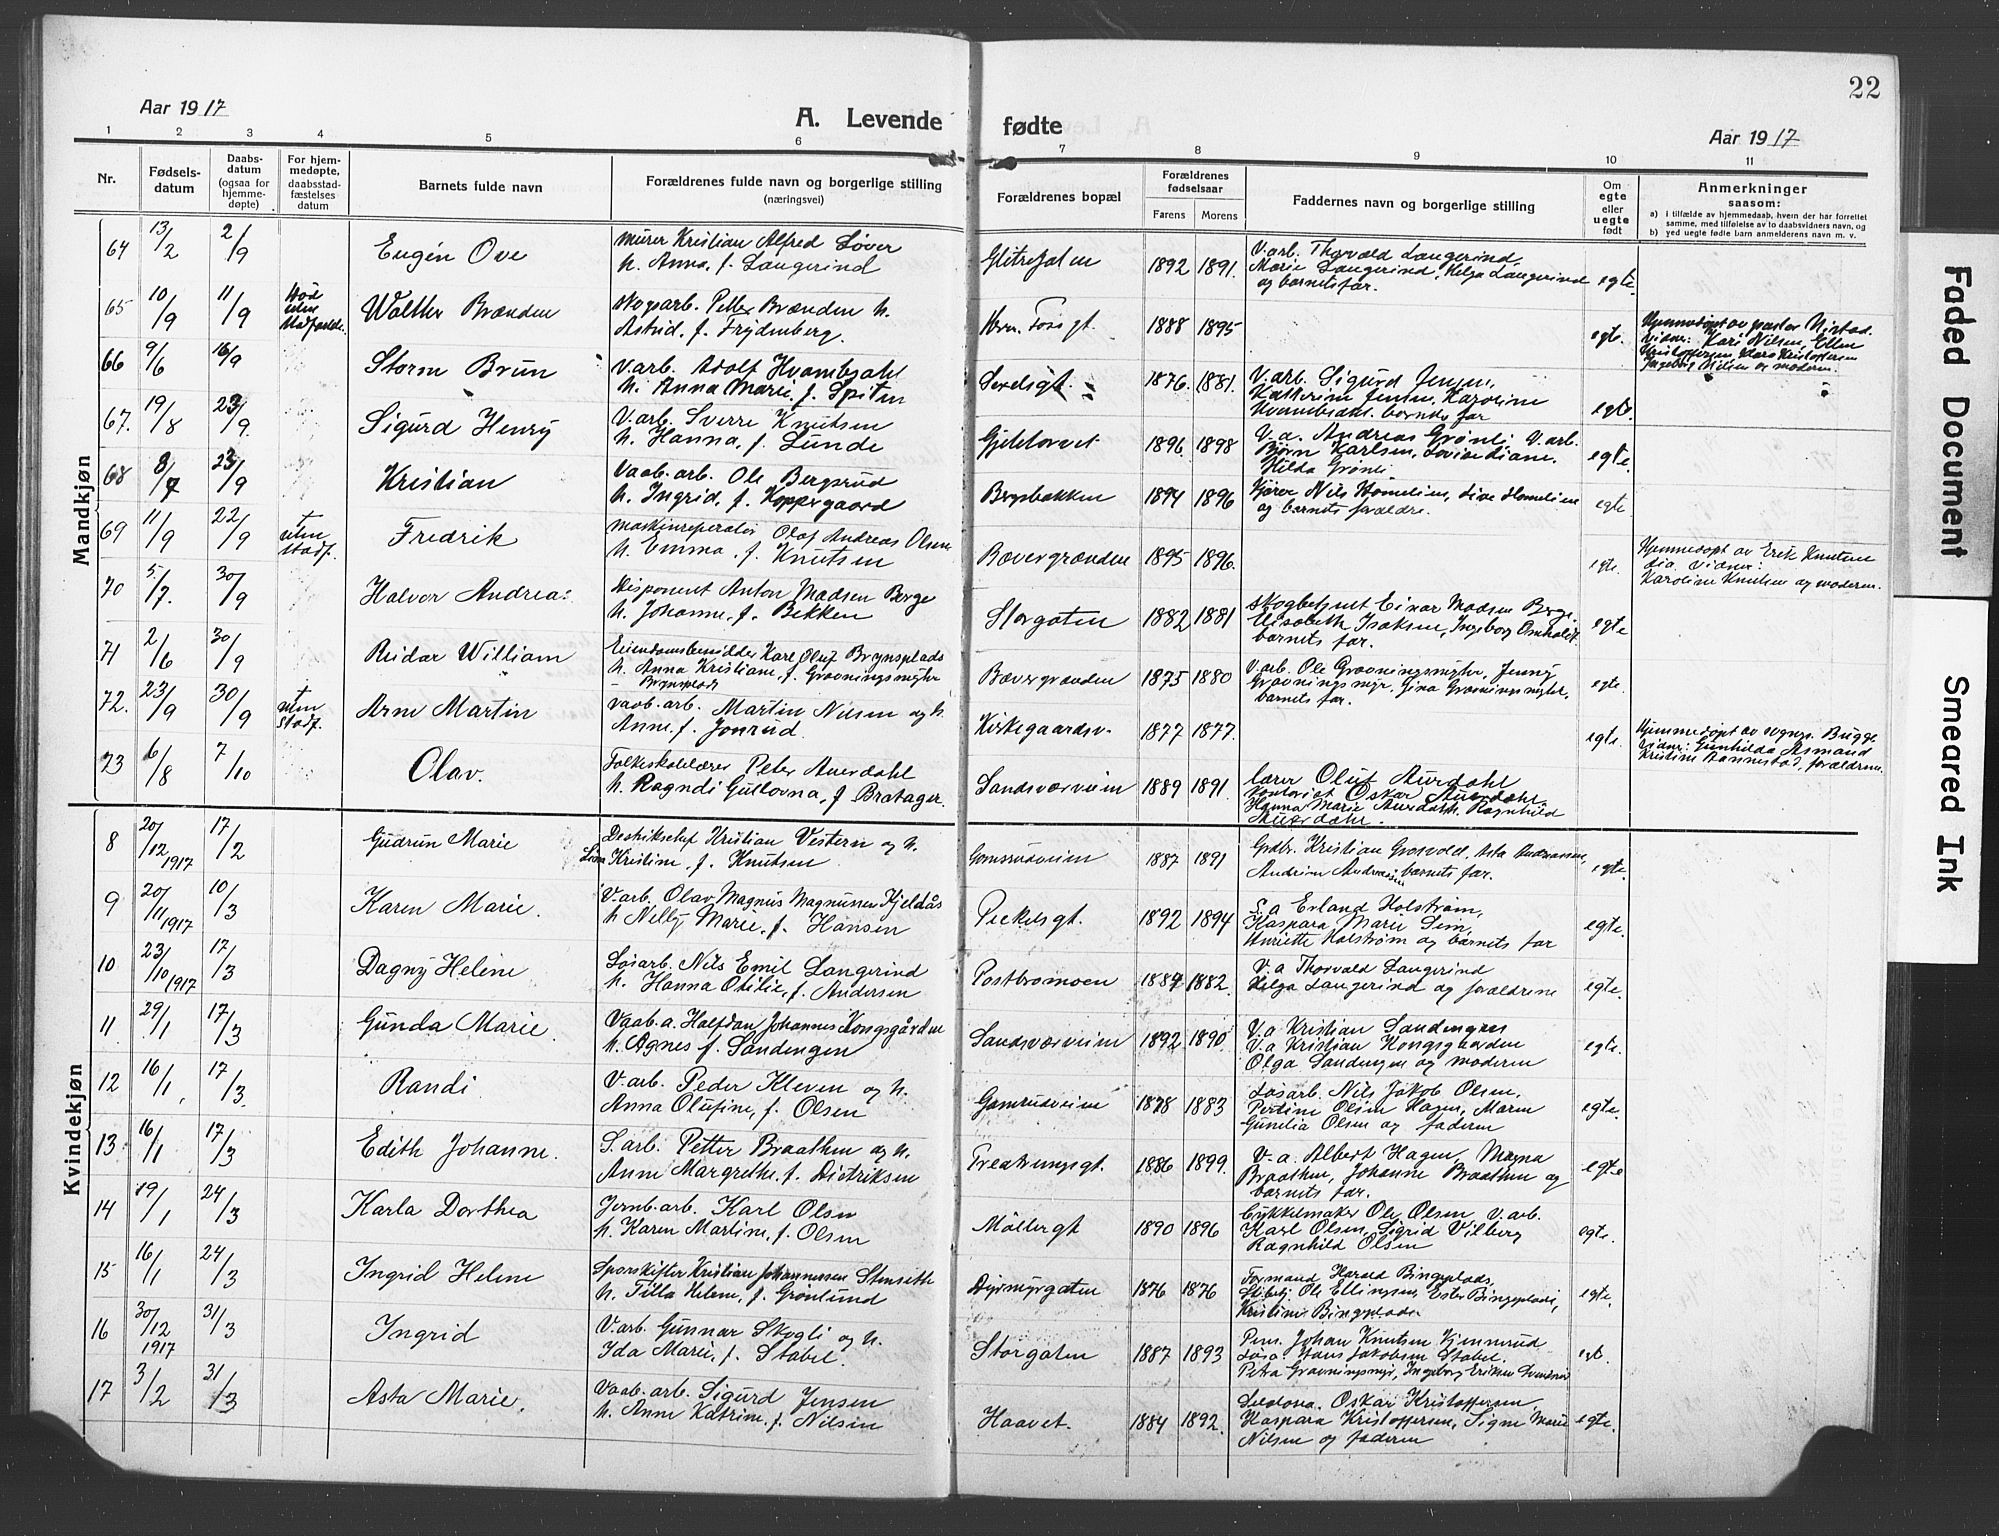 22
Aar 1917
A. Levende fødte
Aar 1917
1 2 3 4 5 6 7 8 9 10 11
Nr.
Fødsels-
datum
Daabs-
datum
(ogsaa for
hjemme-
døpte)
For hjem-
medøpte,
daabsstad-
fæstelses
datum
Barnets fulde navn
Forældrenes fulde navn og borgerlige stilling
(næringsvei)
Forældrenes bopæl
Forældrenes
fødselsaar
Farens Morens
Faddernes navn og borgerlige stilling
Om
egte
eller
uegte
født
Anmerkninger
saasom:
a) i tilfælde av hjemmedaab, hvem der har forrettet
samme, med tilføielse av to daabsvidners navn, og
b) ved uegte fødte barn anmelderens navn m. v.
Mandkjøn
64 13/2 2/9 Eugén Ove
Murer Kristian Alfred Løver
h. Anna, f. Langerind
Glitregaten 1892 1891
V.arb. Thorvald Langerind,
Marie Langerind, Helga Langerind
og barnets far.
egte.
65 10/9 11/9
Død
uten
stadfæstelse.
Walther Brænden
Skogsarb. Petter Brænden h.
Astrid, f. Frydenberg.
1888 1895 egte.
Hjemmedøpt av pastor
Vidner: Kari Nilsen, Ellen
Kristoffersen, Klara Kristoffersen
Ingeborg Nilsen og moderen.
66 9/6 16/9 Storm Brun
V.arb. Adolf Hvambsahl
h. Anna Marie, f. Spiten
1876 1881
V.arb. Sigurd Jensen,
Kathrine Jensen, Karoline
Hvambsahl, barnets far
egte.
67. 19/8 23/9 Sigurd Henry
V.arb. Sverre Knutsen
h. Hanna, f. Lunde
Gjeteltorvet 1896 1898
V.a. Andreas Grønli, V.arb.
Bjørn Karlsen, Lovise Diane,
Hilda Grønli
egte.
68 8/7 23/9 Kristian
Vaab.arb. Ole Bergsrud
h. Ingrid, f. Koppergaard
Bergsbakken 1894 1896
Kjører Nils Homelien, Live Homelien
og barnets forældre.
egte.
69 11/9 22/9
uten
stadf.
Fredrik
Maskinreperatør Olaf Andreas Olsen
h. Emma, f. Knutsen
Bævergrænden 1895 1896. egte.
Hjemmedøpt av Erik Knutsen
dia. Vidner:
Karoline Knutsen og moderen.
70 5/7. 30/9 Halvor Andreas
Disponent Anton Madsen Berge
h. Johanne, f. Bekken
Storgaten 1882 1881
Skogbetjent Einar Madsen Berge.
Elisabeth Isaksen, Ingeborg Omholdt
barnets far.
egte
71 2/6 30/9 Reidar William
Eiendomsbesidder Karl Oluf Brynsplads
h. Anna Kristiane, f. Gravningsmyhr
Brynsplads
Bævergrænden 1875 1880
V.arb. Ole Gravningsmyhr, Jenny
Gravningsmyr, Gina Gravningsmyhr,
barnets far.
egte.
72. 23/9 30/9
uten
stadf.
Arne Martin
Vaab.arb. Martin Nilsen og h.
Anne, f. Jonrud.
Kirkegaardsv. 1877 1877. egte.
Hjemmedøpt av sogn. Bugge
Vidner: Gunhilda Asmand
Kristine Bannestad, forældrene.
73 6/8 7/10 Olav.
Folkeskolelærer Peter Auerdahl
h. Ragndi Gullovna, f. Bratager.
Sandsværveien 1889 1891.
Lærer Oluf Auerdahl
Kontorist Oskar Auerdahl.
Hanna Marie Auerdahl, Ragnhild
Auerdahl.
Kvindekjøn
8 20/12 1917 17/2 Gudrun Marie
Kristian Vestern og h.
Kristine, f. Knutsen
Gomsrudveien 1887 1891
Grdbr. Kristian Grosvold, Asta Andreassen,
Andrine Andreassen, barnets far.
egte.
9 20/11 1917 10/3 Karen Marie.
V.arb. Olav Magnus Magnussen Kjeldås
h. Nelly Marie, f. Hansen
Peckelsgt. 1892 1894
S.a Erland Holstrøm,
Kaspara Marie Lein,
Henriette Holstrøm og barnets far
egte.
10 23/10 1917 17/3 Dagny Heléne
Løsarb. Nils Emil Langerind
h. Hanna Otilie, f. Andersen
Postbromoen 1884 1882.
V.a Thorvald Langerind
Helga Langerind og forældrene
egte.
11 29/1 17/3 Gunda Marie.
Vaab.a. Halfdan Johannes Kongsgården
h. Agnes f. Sandengen
Sandsværveien 1892 1890
V.a Kristian Sandengen
V.a Kristian Kongsgaarden
Olga Sandengen og moderen
egte.
12 16/1 17/3. Randi
V.arb. Peder Kleven og h.
Anna Olufine, f. Olsen
Gomsrudveien 1878 1883
Løsarb. Nils Jakob Olsen,
Pertine Olsen Hagen, Maren
Gunelia Olsen og faderen
egte.
13 16/1 17/3 Edith Johanne.
S.arb. Petter Braathen og h.
Anne Margrethe, f. Didriksen
1886 1899.
V.a. Albert Hagen, Magna
Braathen, Johanne Braathen og
barnets far.
egte
14 19/1 24/3 Karla Dorthea
Jernb.arb. Karl Olsen
h. Karen Martine, f. Olsen
Møllergt 1890 1896
Cykkelmaker Ole Olsen V.arb.
Karl Olsen, Sigrid Vilberg
Ragnhild Olsen
egte.
15 16/1 24/3 Ingrid Helene
Sporskifter Kristian Johannessen Stenseth
h. Tilla Helene, f. Grønlund
Dyrmyrgaten 1876 1876
Formand Harald Bingeplads,
Ole Ellingsen, Ester Bingeplads,
Kristine Bingeplads
egte.
16 30/12 1917 31/3 Ingrid
V.arb. Gunnar Skogli og h.
Ida Marie, f. Stabel.
Storgaten 1887 1893
Pens. Johan Knutsen Kjennerud
Løsa. Hans Jakobsen Stabel.
Petra Gravningsmyr, Ingeborg Eriksen
egt.
17 3/2 31/3 Asta Marie.
Vaab.arb. Sigurd Jensen
h. Anne Katrine, f. Nilsen
Haavet. 1884 1892.
Oskar Kristoffersen,
Kaspara Kristoffersen, Signe Marie
Nilsen og faderen
egte.
Faded Document
Smeared Ink